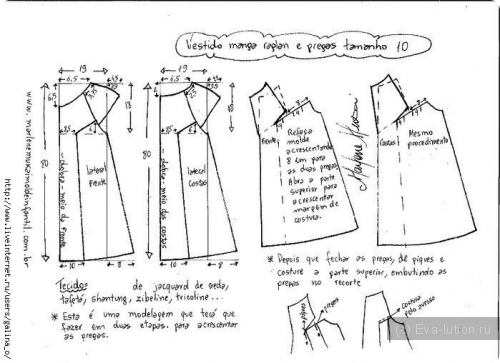 Vestido manga raglan e pregas tamanho 10
19
6,5
4,5
6,5
3,5
13
8,5
80
- dobra - meio da frente
lateral
frente
10
8
19
6,5
4,5
13
8,5
6
80
- dobra - meio das costas
lateral
costas
10
8
Frente
4
4
Refaça
molde
acrescentando
8 cm para
as duas pregas.
Abra a parte
superior para
acrescentar
margem de
costura.
Costas
4
4
Mesmo
procedimento
Tecidos
de jacquard de seda,
tafetá, shantung, zibeline, tricoline...
* Esta é uma modelagem que terá que
fazer em duas etapas. para acrescentar
as pregas.
* Depois que fechar as pregas, dê piques e
costure a parte superior, embutindo as
pregas no recorte
pregas
costura
pelo avesso
www.marlenemukaimoldeinfantil.com.br
http://www.liveinternet.ru/users/galina_o/
(c) Eva-lution.ru